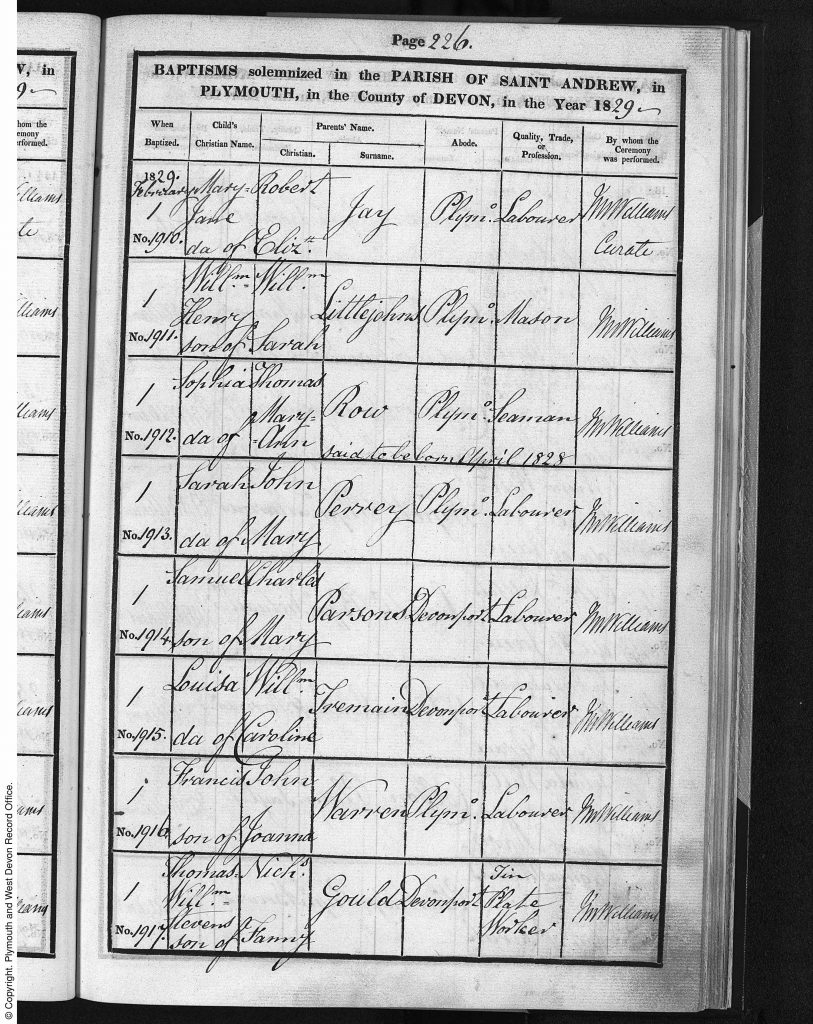 Page 226.
BAPTISMS solemnized in the PARISH OF SAINT ANDREW, in
PLYMOUTH, in the County of DEVON, in the Year 1829
When Baptized. Child's Christian Name. Parents' Name. Christian. Surname. Abode. Quality, Trade, or Profession. By whom the Ceremony was performed.
1829.
February Mary- Robert
1 Jane Jay Plymo. Labourer Williams
No. 1910. da of Elizth. Curate
Willm. Willm.
1 Henry Littlejohns Plymo. Mason Williams
No. 1911. son of Sarah
Sophia Thomas
1 Mary- Row Plymo. Seaman Williams
No. 1912. da of Ann said to be born April 1828
Sarah John
1 Perrey Plymo. Labourer Williams
No. 1913. da of Mary
Samuel Charles
1 Parsons Devonport Labourer Williams
No. 1914. son of Mary
Louisa Willm.
1 Tremain Devonport Labourer Williams
No. 1915. da of Caroline
Francis John
1 Warren Plymo. Labourer Williams
No. 1916. son of Joanna
Thomas Nichs. Tin
1 Willm. Gould Devonport Plate Williams
Stevens Worker
No. 1917. son of Fanny
© Copyright. Plymouth and West Devon Record Office.